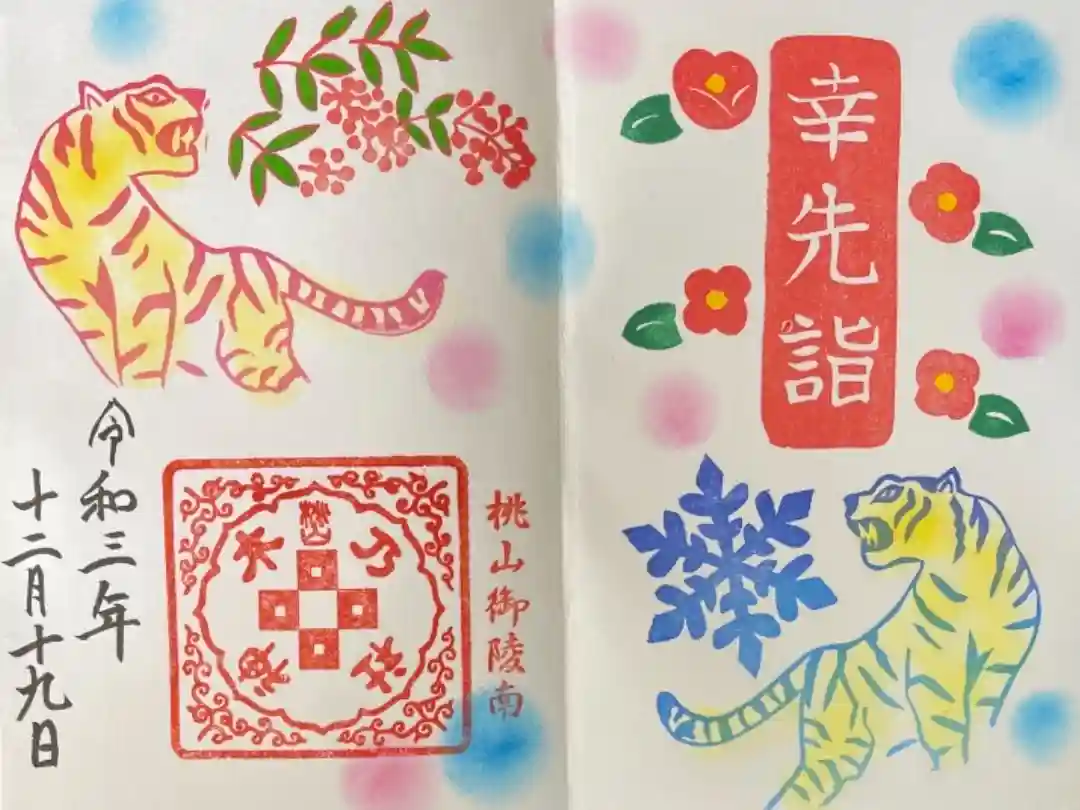 幸先詣
桃山御陵南
令和三年
十二月十九日